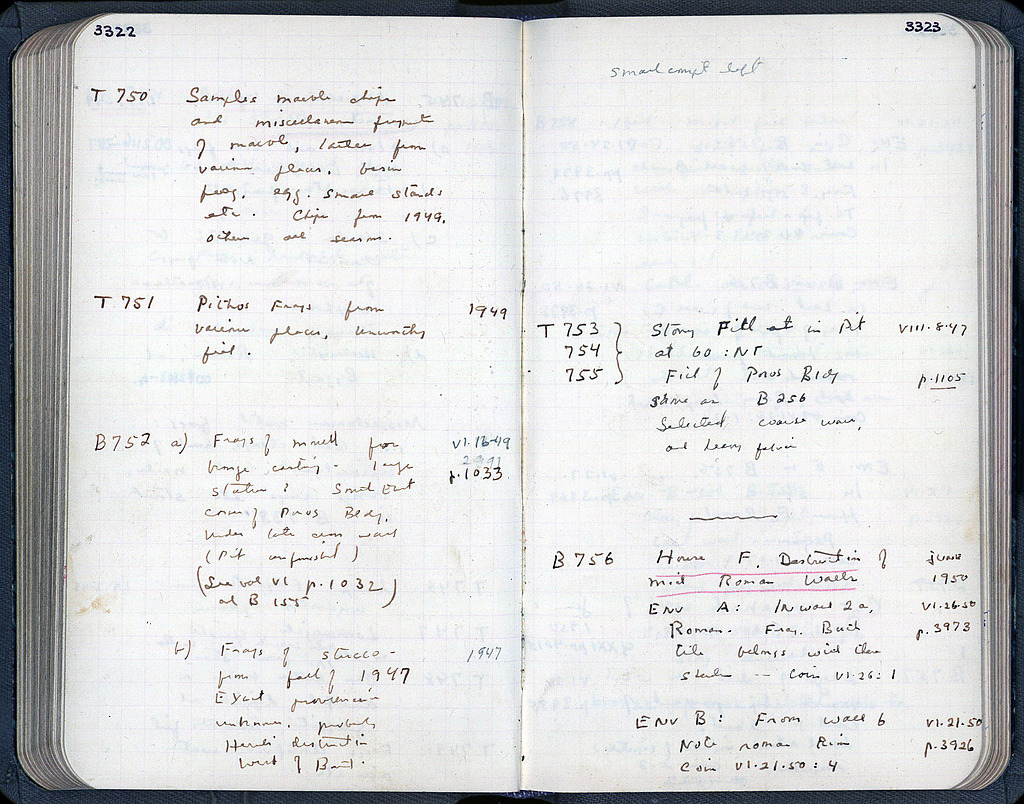 3322
T 750 Samples marble chips
and miscellaneous fragments
of marble, latter from
various places, basin
frag. egg. small stands
etc. Chips from 1949,
others all seasons.
T 751 Pithos Frags from 1949
various places, unworthy
fill.
B 752 a) Frags of mould for VI·16·49
bronze casting large 2991
statue? South East p.1033
corner of Poros Bldg,
under late cross wall
(Pit unfinished)
(See vol VI p.1032)
at B 155
b) Frags of stucco - 1947
from fall of 1947
Exact provenience
unknown. probably
Heruli destruction
West of
3323
small compt left
T 753 Stony Fill at in Pit VIII·8·47
754 at 60 : NT
755 Fill of Poros Bldg p.1105
same as B 256
Selected coarse ware,
and heavy
B 756 House F. Destruction of June
mid Roman Walls 1950
ENV A: In wall 2a, VI·26·50
Roman. Frag. p.3973
tile belongs with
-- Coin VI·26:1
ENV B: From wall 6 VI·21·50
Note roman Rim p.3926
Coin VI·21·50:4